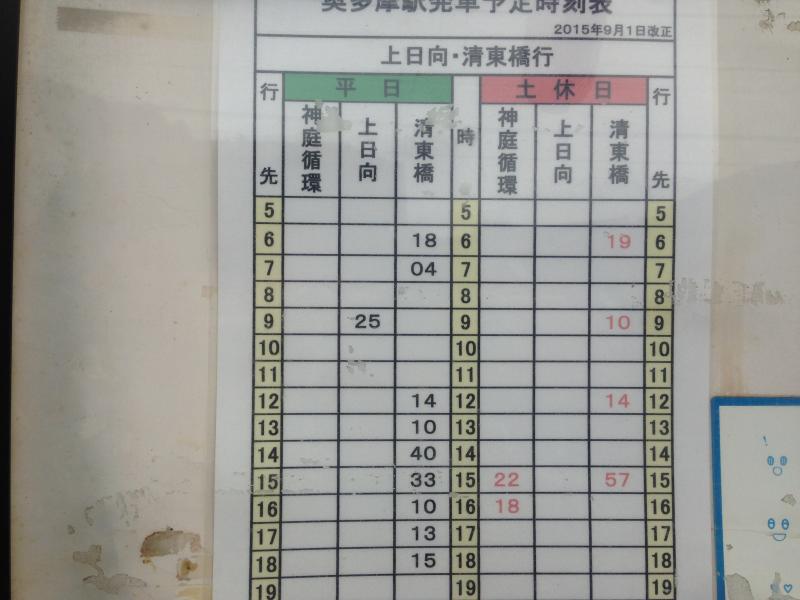 奥多摩駅発車予定時刻表
2015年9月1日改正
上日向・清東橋行
行先 平日 時 土休日 行先
神庭循環 上日向 清東橋 神庭循環 上日向 清東橋
5 5 5
6 18 6 19 6
7 04 7 7
8 8 8
9 25 9 10 9
10 10 10
11 11 11
12 14 12 14 12
13 10 13 13
14 40 14 14
15 33 15 22 57 15
16 10 16 18 16
17 13 17 17
18 15 18 18
19 19 19